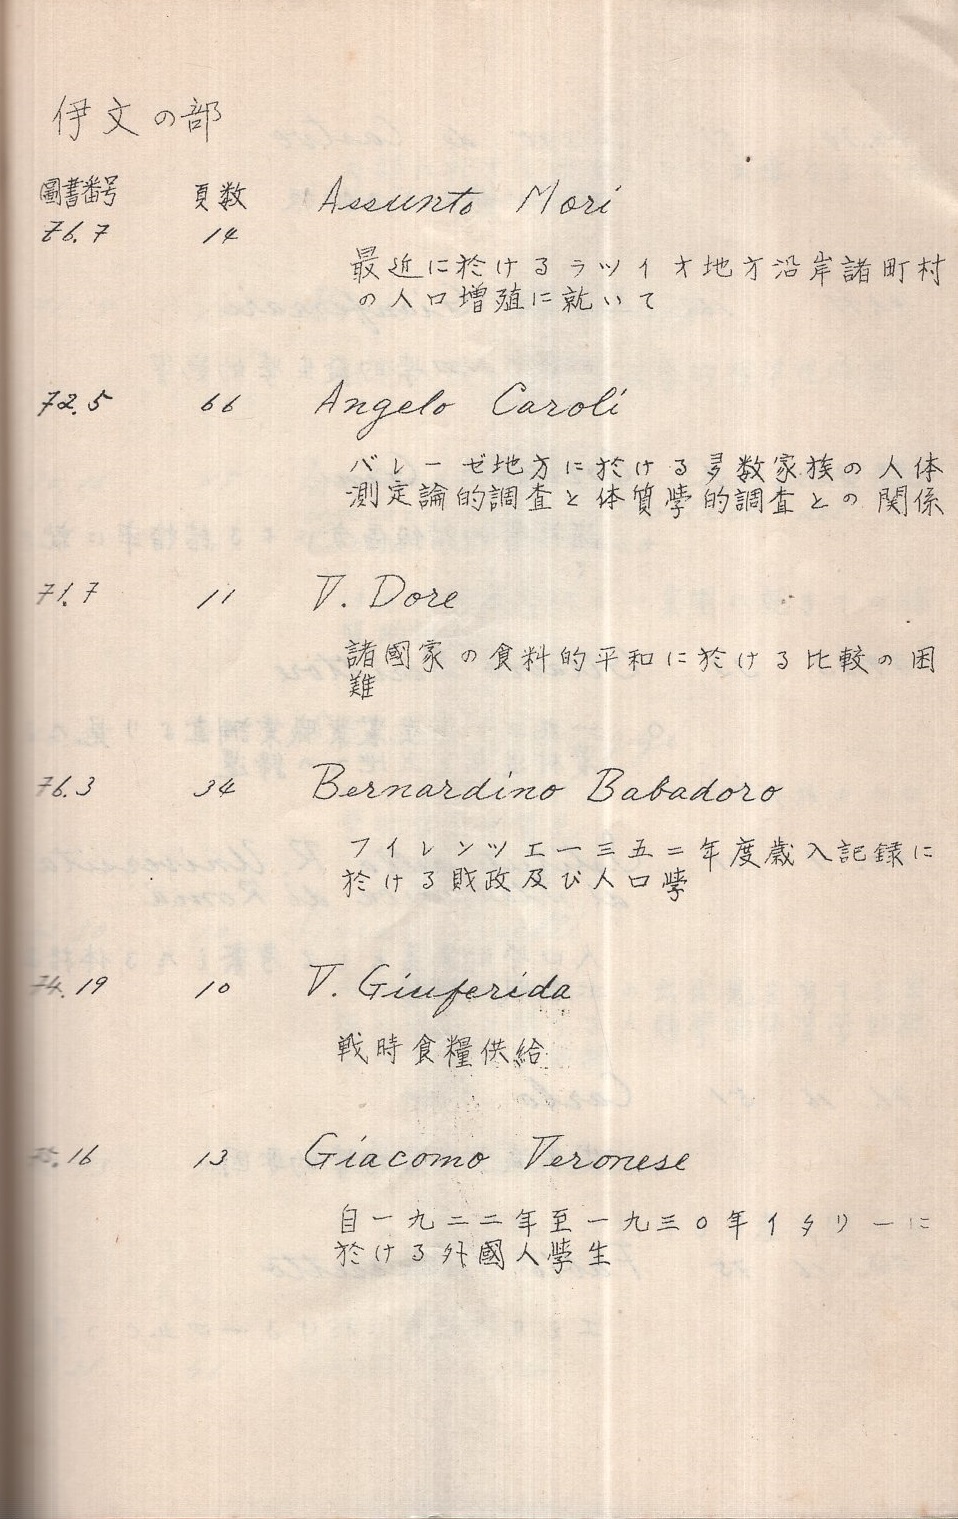 伊文の部
圖書番号 頁数 Assunto Mori
76.7 14
最近に於けるラツイオ地方沿岸諸町村
の人口増殖に就いて
72.5 66 Angelo Caroli
バレーゼ地方に於ける多数家族の人体
測定論的調査と体質學的調査との関係
71.7 11 V. Dore
諸國家の食料的平和に於ける比較の困
難
76.3 34 Bernardino Babadoro
フイレンツエ一三五二年度歳入記録に
於ける財政及び人口學
74.19 10 V. Giuferida
戦時食糧供給
75.16 13 Giacomo Veronese
自一九二二年至一九三〇年イタリーに
於ける外國人學生